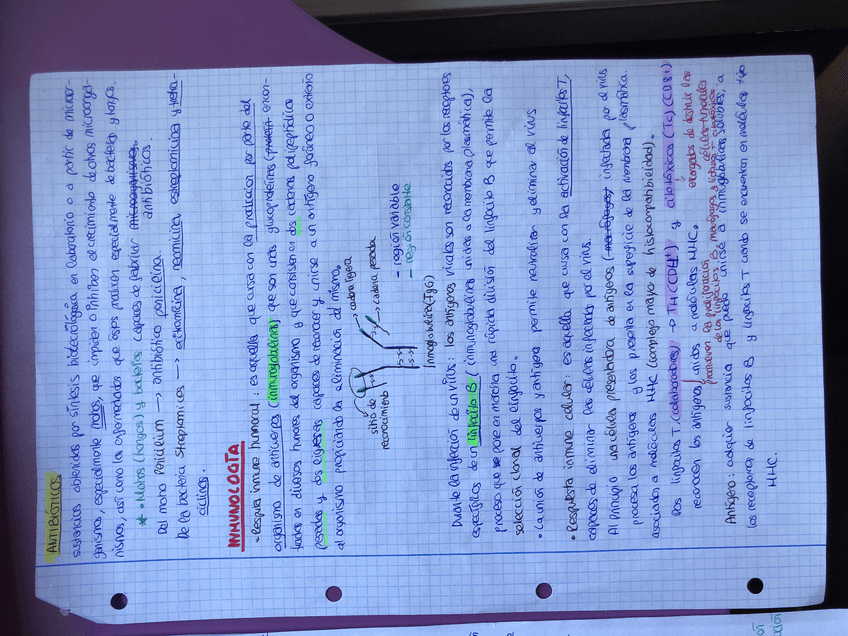 ANTIBIÓTICOS
sustancias obtenidas por síntesis biotecnológica en laboratorio o a partir de microor-
ganismos, especialmente mohos, que impiden o inhiben el crecimiento de otros microorga-
nismos, así como las enfermedades que estos producen especialmente de bacterias y hongos.
* • Mohos (hongos) y bacterias capaces de fabricar microorganismos.
antibióticos.
Del moho Penicilium → antibiótico penicilina.
De la bacteria Streptomices → neomicina, estreptomicina y tetra-
ciclinas.
INMUNOLOGÍA
- Respuesta inmune humoral: es aquella que cursa con la producción por parte del
organismo de anticuerpos (inmunoglobulinas) que son unas glucoproteínas encon-
tradas en diversos humores del organismo y que consisten en dos cadenas polipeptídicas
pesadas y dos ligeras capaces de reconocer y unirse a un antígeno foráneo o extraño
al organismo propiciando la eliminación del mismo.
sitio de
reconocimiento
cadena ligera
cadena pesada
s-s
s-s
- región variable
- región constante
Inmunoglobulina (IgG)
Durante la infección de un virus: los antígenos virales son reconocidos por los receptores
específicos de un linfocito B (inmunoglobulinas unidas a la membrana plasmática),
proceso que se pone en marcha una rápida división del linfocito B que permite la
selección clonal del linfocito.
• La unión de anticuerpos y antígeno permite neutralizar y eliminar al virus
• Respuesta inmune celular: es aquella que cursa con la activación de linfocitos T,
capaces de eliminar las células infectadas por el virus.
Al principio una célula presentadora de antígenos (macrófagos) infectada por el virus
procesa los antígenos y los presenta en la superficie de la membrana plasmática.
asociados a moléculas MHC (complejo mayor de histocompatibilidad).
Los linfocitos T (colaboradores) → TH (CD4+) y citotóxicos (Tc) (CD8+)
reconocen los antígenos unidos a moléculas MHC.
encargados de destruir las
células tumorales
promueven la proliferación
de los linfocitos B, macrófagos y linfocitos T citotóxicos
Antígeno: cualquier sustancia que puede unirse a inmunoglobulinas solubles, a
los receptores de linfocitos B y linfocitos T cuando se encuentran en moléculas tipo
MHC.